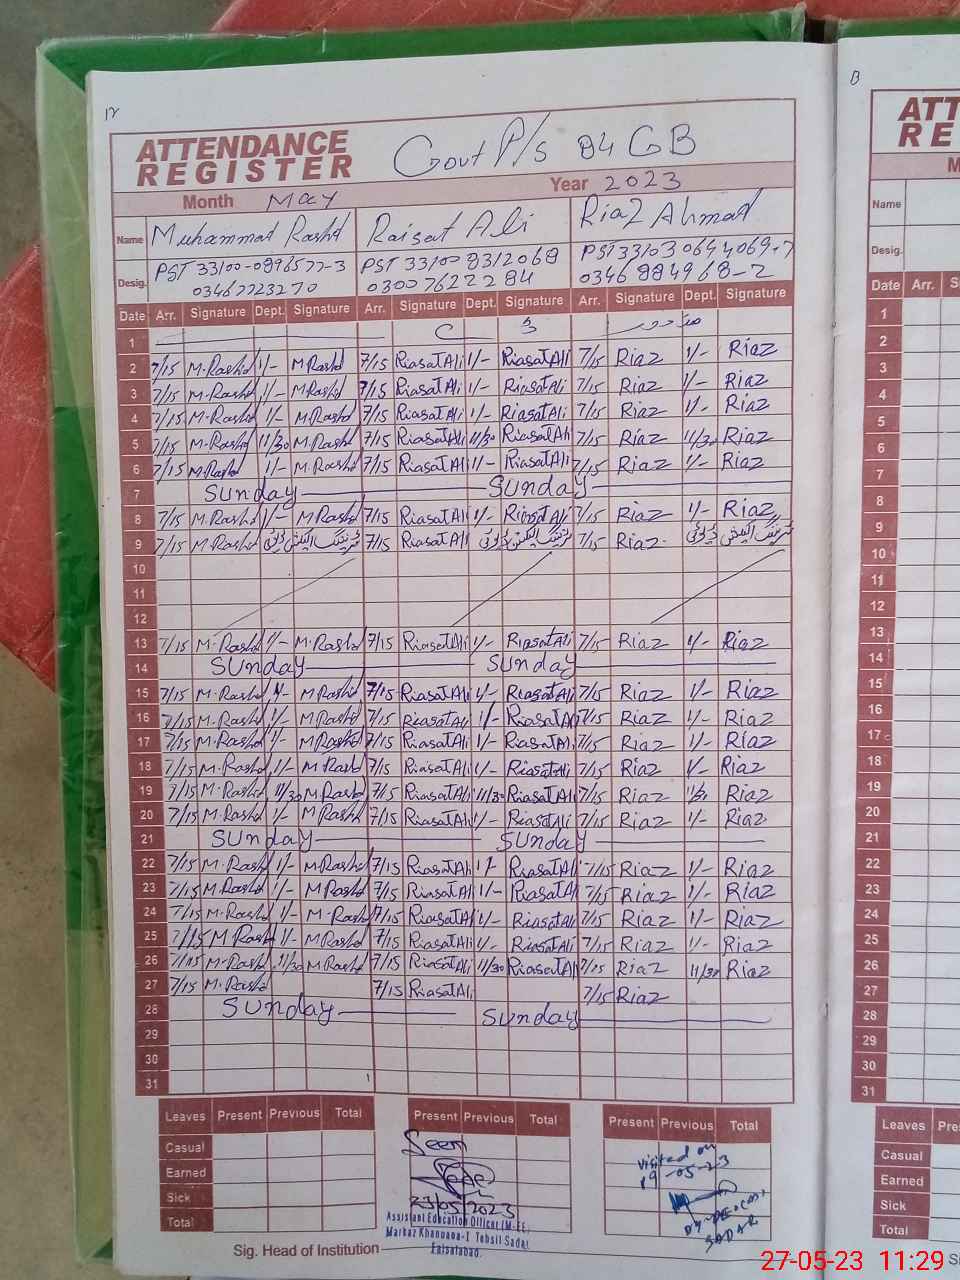 12
ATTENDANCE
REGISTER
Govt P/s 84 GB
Month May Year 2023
Name Muhammad Rashd Raisat Ali Riaz Ahmad
Desig. PST 33100-0896577-3 PST 33100 8312068 PST 33103
03467723270 03007622284 0346884968-2
Date Arr. Signature Dept. Signature Arr. Signature Dept. Signature Arr. Signature Dept. Signature
1
2 7/15 M.Rashd 1/- M Rashd 7/15 Riasat Ali 1/- Riasat Ali 7/15 Riaz 1/- Riaz
3 7/15 M.Rashd 1/- M.Rashd 7/15 Riasat Ali 1/- Riasat Ali 7/15 Riaz 1/- Riaz
4 7/15 M.Rashd 1/- M.Rashd 7/15 Riasat Ali 1/- Riasat Ali 7/15 Riaz 1/- Riaz
5 7/15 M.Rashd 11/30 M.Rashd 7/15 Riasat Ali 11/30 Riasat Ali 7/15 Riaz 11/30 Riaz
6 7/15 M.Rashd 1/- M.Rashd 7/15 Riasat Ali 1/- Riasat Ali 7/15 Riaz 1/- Riaz
7 Sunday Sunday
8 7/15 M.Rashd 1/- M Rashd 7/15 Riasat Ali 1/- Riasat Ali 7/15 Riaz 1/- Riaz
9 7/15 M.Rashd 7/15 Riasat Ali 7/15 Riaz
10
11
12
13 7/15 M.Rashd 1/- M.Rashd 7/15 Riasat Ali 1/- Riasat Ali 7/15 Riaz 1/- Riaz
14 Sunday Sunday
15 7/15 M.Rashd 1/- M Rashd 7/15 Riasat Ali 1/- Riasat Ali 7/15 Riaz 1/- Riaz
16 7/15 M.Rashd 1/- M Rashd 7/15 Riasat Ali 1/- Riasat Ali 7/15 Riaz 1/- Riaz
17 7/15 M.Rashd 1/- M Rashd 7/15 Riasat Ali 1/- Riasat Ali 7/15 Riaz 1/- Riaz
18 7/15 M.Rashd 1/- M Rashd 7/15 Riasat Ali 1/- Riasat Ali 7/15 Riaz 1/- Riaz
19 7/15 M.Rashd 11/30 M Rashd 7/15 Riasat Ali 11/30 Riasat Ali 7/15 Riaz 11/30 Riaz
20 7/15 M.Rashd 1/- M Rashd 7/15 Riasat Ali 1/- Riasat Ali 7/15 Riaz 1/- Riaz
21 Sunday Sunday
22 7/15 M.Rashd 1/- M.Rashd 7/15 Riasat Ali 1/- Riasat Ali 7/15 Riaz 1/- Riaz
23 7/15 M.Rashd 1/- M Rashd 7/15 Riasat Ali 1/- Riasat Ali 7/15 Riaz 1/- Riaz
24 7/15 M.Rashd 1/- M.Rashd 7/15 Riasat Ali 1/- Riasat Ali 7/15 Riaz 1/- Riaz
25 7/15 M Rashd 1/- M Rashd 7/15 Riasat Ali 1/- Riasat Ali 7/15 Riaz 1/- Riaz
26 7/15 M.Rashd 11/30 M Rashd 7/15 Riasat Ali 11/30 Riasat Ali 7/15 Riaz 11/30 Riaz
27 7/15 M.Rashd 7/15 Riasat Ali 7/15 Riaz
28 Sunday Sunday
29
30
31
Leaves Present Previous Total Present Previous Total Present Previous Total
Casual
Earned
Sick
Total
Seen
23/05/2023
Assistant Education Officer (M-EE)
Markaz Khanuana-I Tehsil Sadar
Faisalabad.
visited on
19-05-23
SADAR
Sig. Head of Institution
13
ATT
RE
M
Name
Desig.
Date Arr. S
1
2
3
4
5
6
7
8
9
10
11
12
13
14
15
16
17
18
19
20
21
22
23
24
25
26
27
28
29
30
31
Leaves Pre
Casual
Earned
Sick
Total
27-05-23 11:29